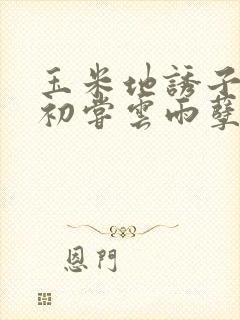 玉米地誘子
初嘗雲雨孽
恩門